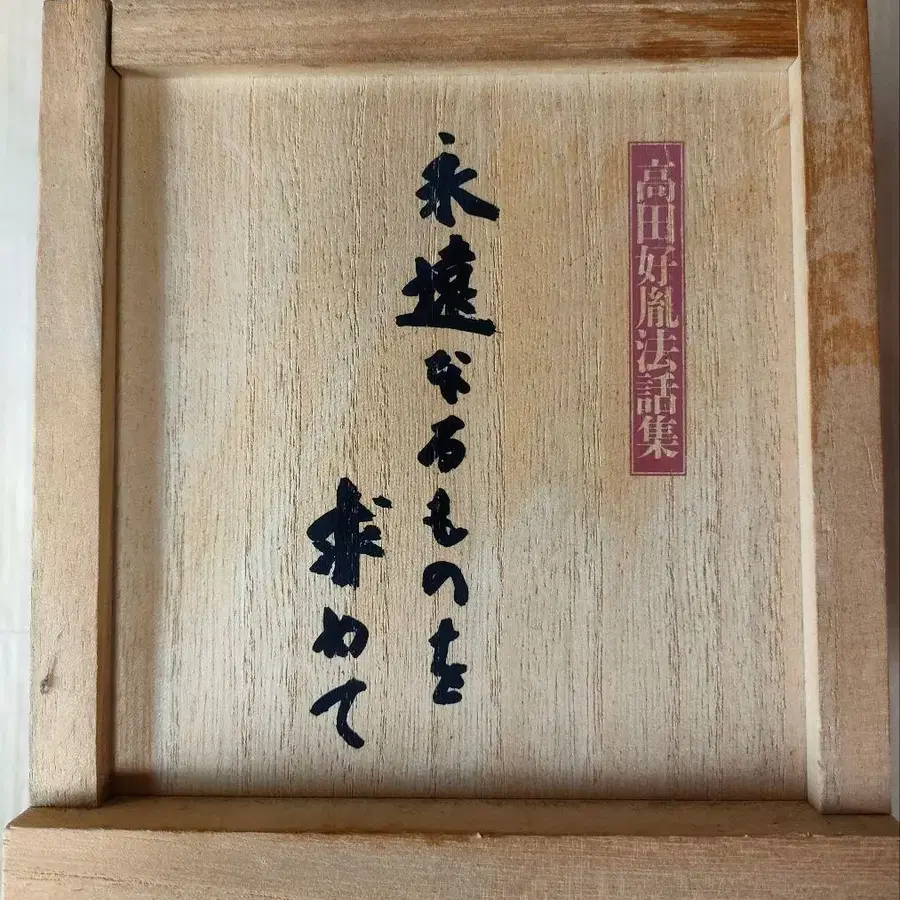 高田好胤法話集
永遠なるものを
求めて